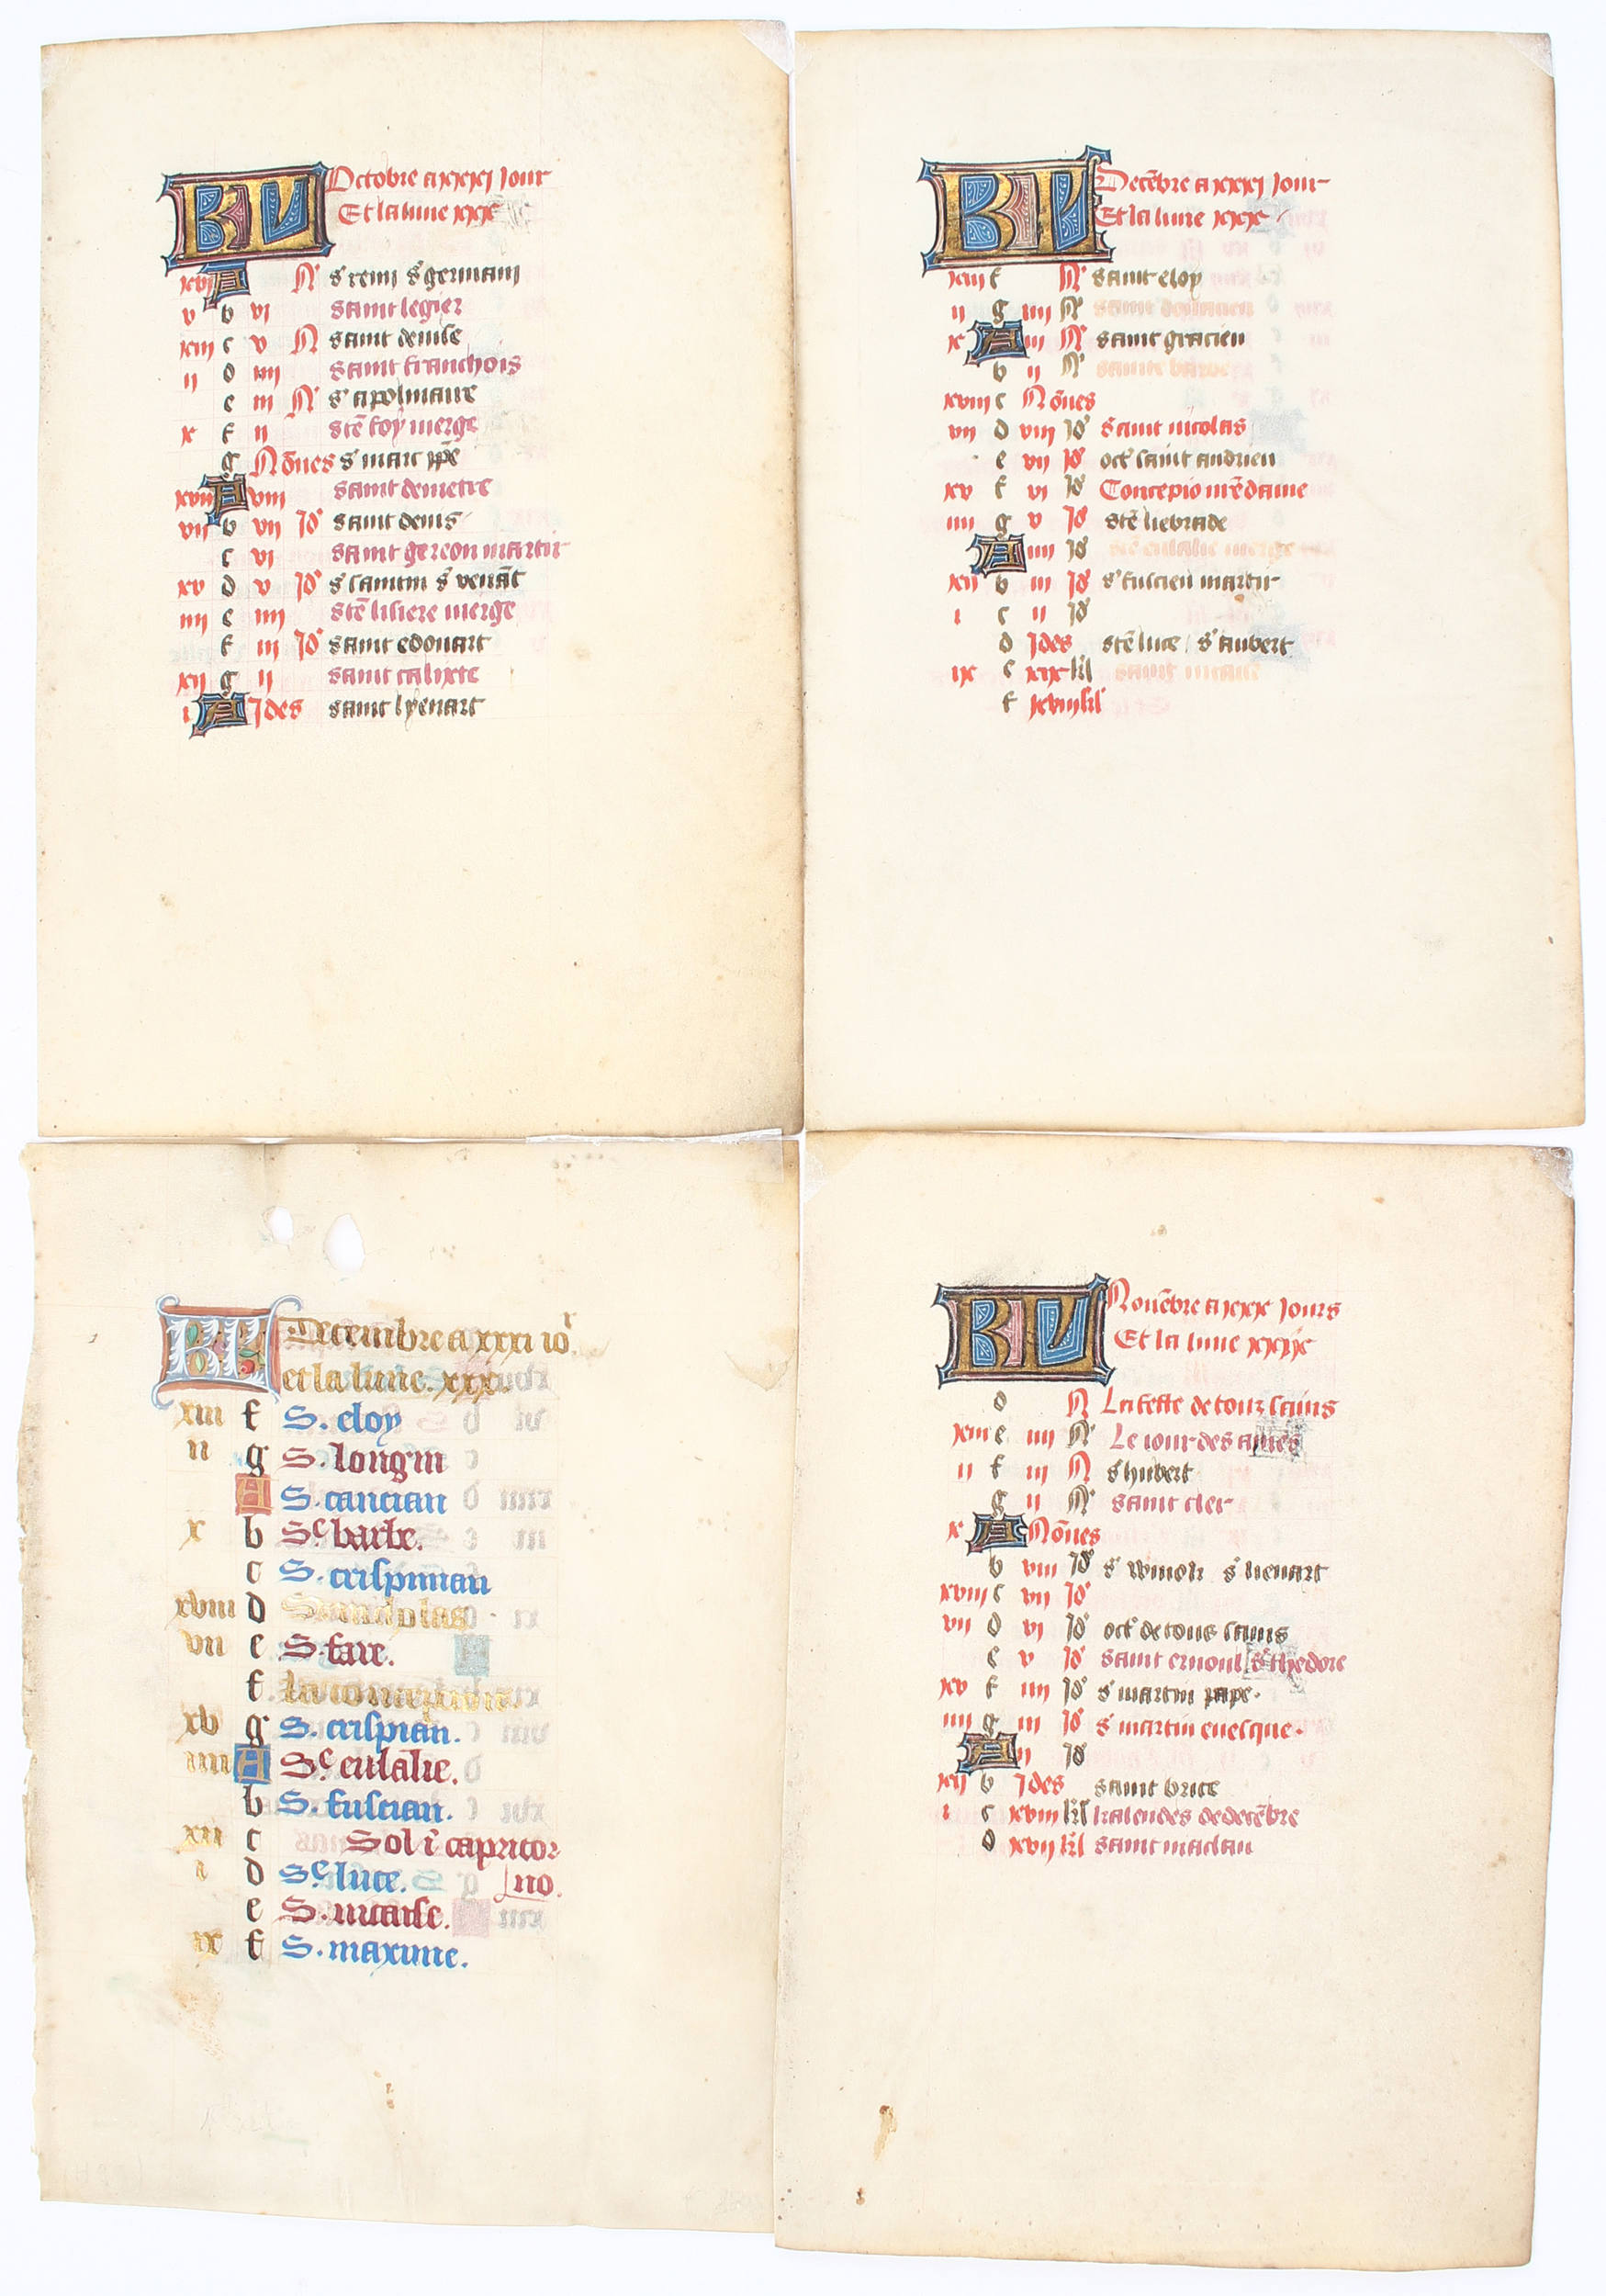 KL Octobre a xxxi Jour
Et la lune xxx
xvi A N s' remi s' germain
v b vi saint legier
xiii c v N saint denise
ii d iiii saint franchois
e iii N s' apolinaire
x f ii stē foy vierge
g Nōnes s' marc ppē
xviii A viii saint demetre
vii b vii Id' saint denis
c vi saint gereon martir
xv d v Id' s' venāt
iiii e iiii stē vierge
f iii Id' saint edouart
xii g ii saint calixte
i A Ides saint lyenart
KL Decēbre a xxxi Jour
Et la lune xxx
xiii f N saint eloy
ii g iiii N
x A iii N saint gracien
b ii N sainte barbe
xviii c Nōnes
vii d viii Id' Saint nicolas
e vii Id' oct' saint andrieu
xv f vi Id' Concepio nrē dame
iiii g v Id' stē liebrade
A iiii Id' stē eulalie vierge
xii b iii Id' s' fuscien martir
i c ii Id'
d Ides stē luce / s' aubert
ix e xix kl saint nicaise
f xviii kl
KL Decembre a xxxi io'.
et la lune. xxx.
xiii f S. eloy
ii g S. longin
A S. cancian
x b Sᵉ barbe.
c S. crispinian
xviii d S. nicolas
vii e S. fare.
f. la conception.
xv g S. crispian.
iiii A Sᵉ eulalie.
b S. fuscian.
xii c Sol ī capricor
i d Sᵉ luce. no.
e S. nicaise.
ix f S. maxime.
KL Nouēbre a xxx Jours
Et la lune xxix
d N La feste de touz sains
xiii e iiii N Le iour des ames
ii f iii N s' hubert
g ii N saint cler
x A Nōnes
b viii Id' s' winoh s' lienart
xviii c vii Id'
vii d vi Id' oct' de tous sains
e v Id' saint ernoul s' thedore
xv f iiii Id' s' martin pape.
iiii g iii Id' s' martin euesque.
A ii Id'
xii b Ides saint brice
i c xviii kl kalendes de decēbre
d xvii kl saint maclau